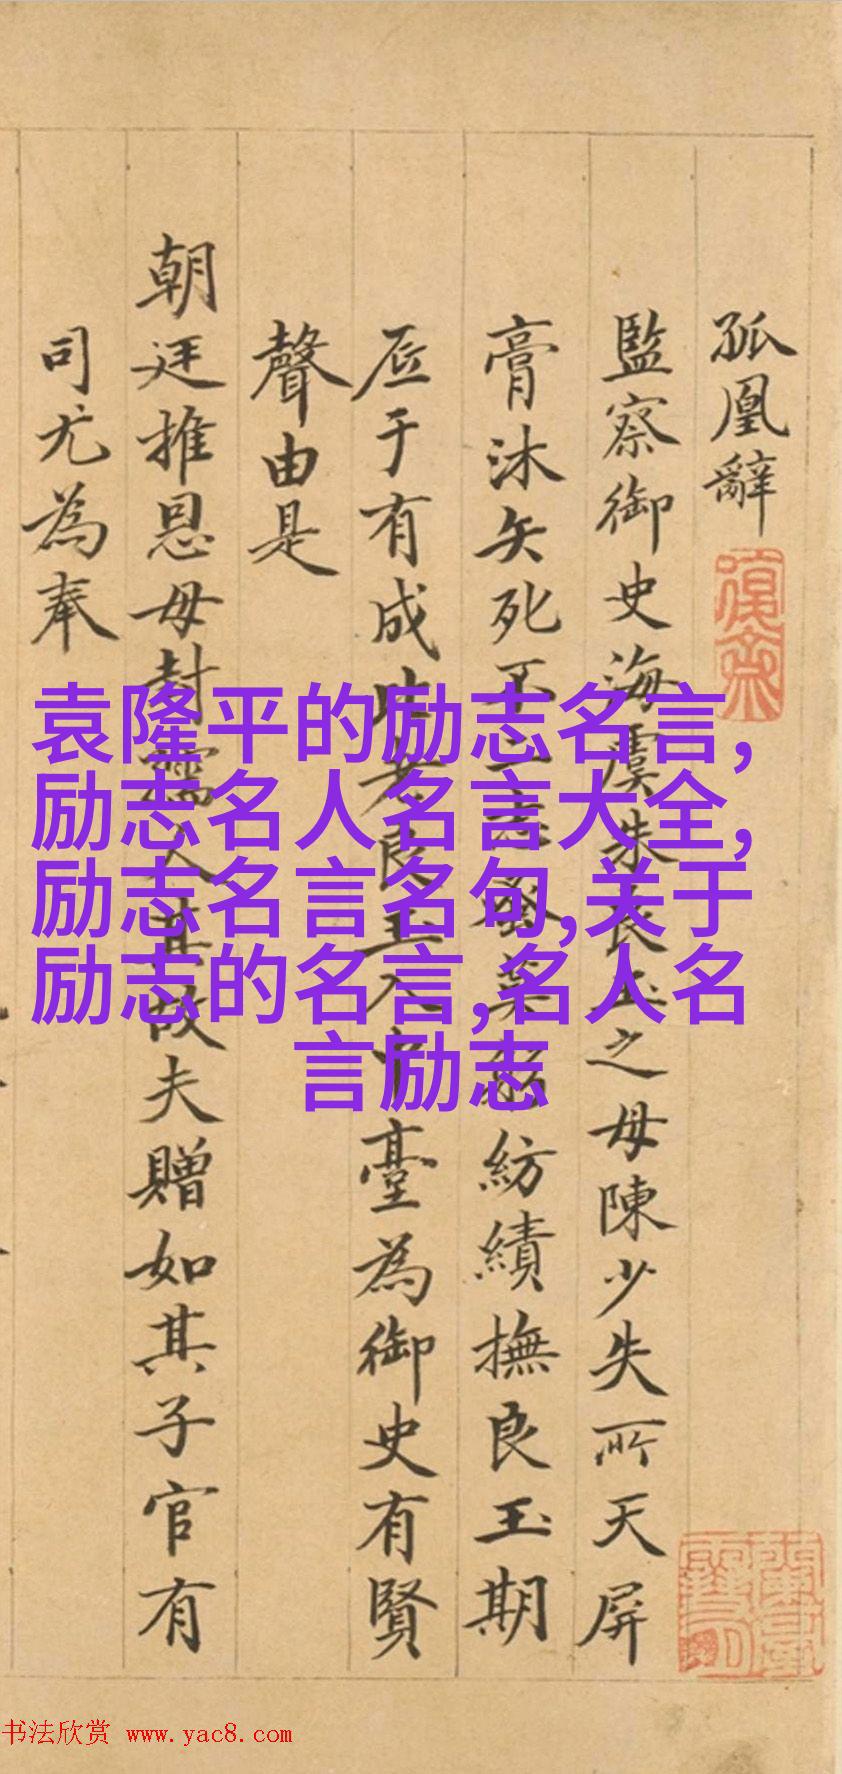 孤凰辭
監察御史海虞朱良玉之母陳少失所天屏
膏沐矢死不二志蚤紡績撫良玉期
底于有成時良玉入中臺為御史有賢
聲由是
朝廷推恩母封孺人其故夫贈如其子官有
司尤為奉
袁隆平的励志名言,
励志名人名言大全,
励志名言名句,关于
励志的名言,名人名
言励志
书法欣赏 www.yac8.com